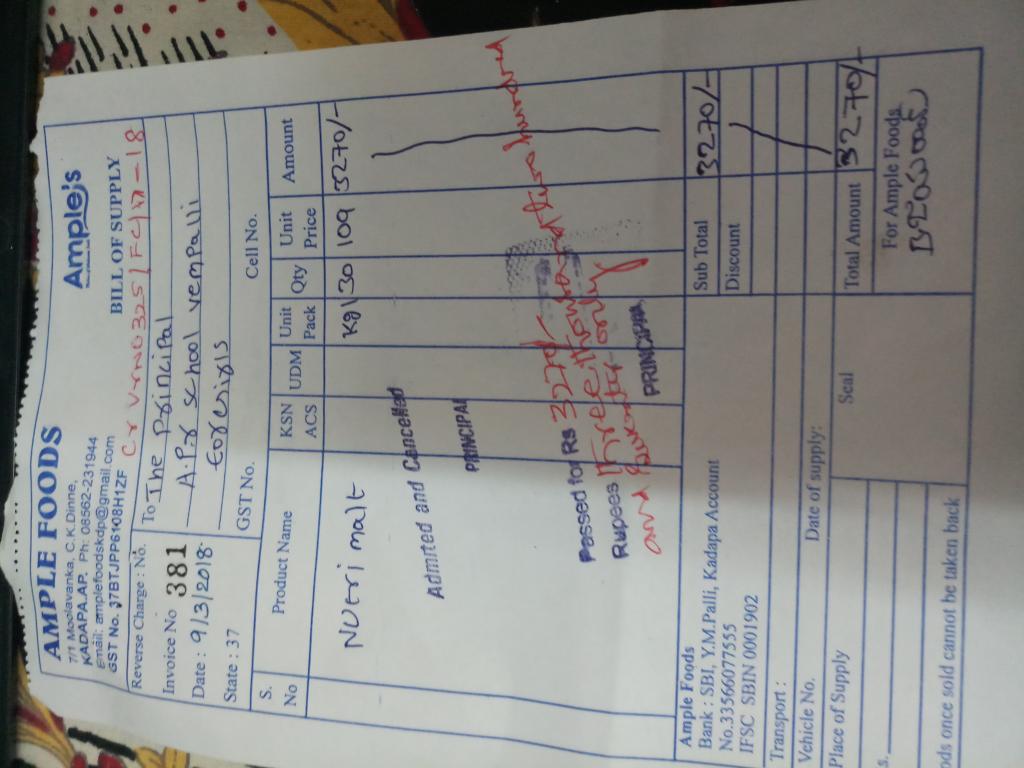 AMPLE FOODS
Ample's
7/1 Moolavanka, C.K.Dinne,
KADAPA.AP. Ph: 08562-231944
email: amplefoodskdp@gmail.com
GST No. 37BTJPP6108H1ZF
BILL OF SUPPLY
Cr V.rNo 325/FC/17-18
Reverse Charge : No.
Invoice No 381
Date : 9/3/2018
State : 37
To The Principal
A.P.r school vempalli
for Girls
GST No. Cell No.
S. No Product Name KSN ACS UDM Unit Pack Qty Unit Price Amount
Nutri malt Kg 30 109 3270/-
Admited and Cancelled
PRINCIPAL
Passed for Rs 3270/-
Rupees Three thousand two hundred
and Seventy only
PRINCIPAL
Ample Foods
Bank : SBI, Y.M.Palli, Kadapa Account
No.33566077555
IFSC SBIN 0001902
Sub Total 3270/-
Discount
Transport :
Vehicle No. Date of supply:
Place of Supply
Total Amount 3270/-
Seal
For Ample Foods
s.
ods once sold cannot be taken back